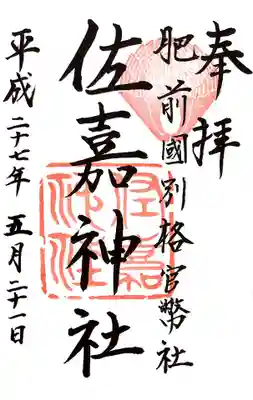 奉拝
肥前國別格官幣社
佐嘉神社
平成二十七年 五月二十一日
佐嘉神社